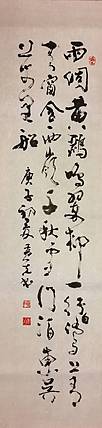 两個黄鸝鳴翠柳一行白鷺上青
天窗含西嶺千秋雪門泊東吴
萬里船
庚子初夏